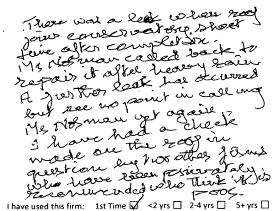 There was a leak when roof
joins conservatory, short
time after completion.
Mr Norman called back to
repair it after heavy rain
A further leak has occurred
but see no point in calling
Mr Norman yet again.
I have had a check
made on the roof in
question by two other firms
who have been privately
recommended who think it is
poor.
I have used this firm: 1st Time ☑ <2 yrs ☐ 2-4 yrs ☐ 5+ yrs ☐